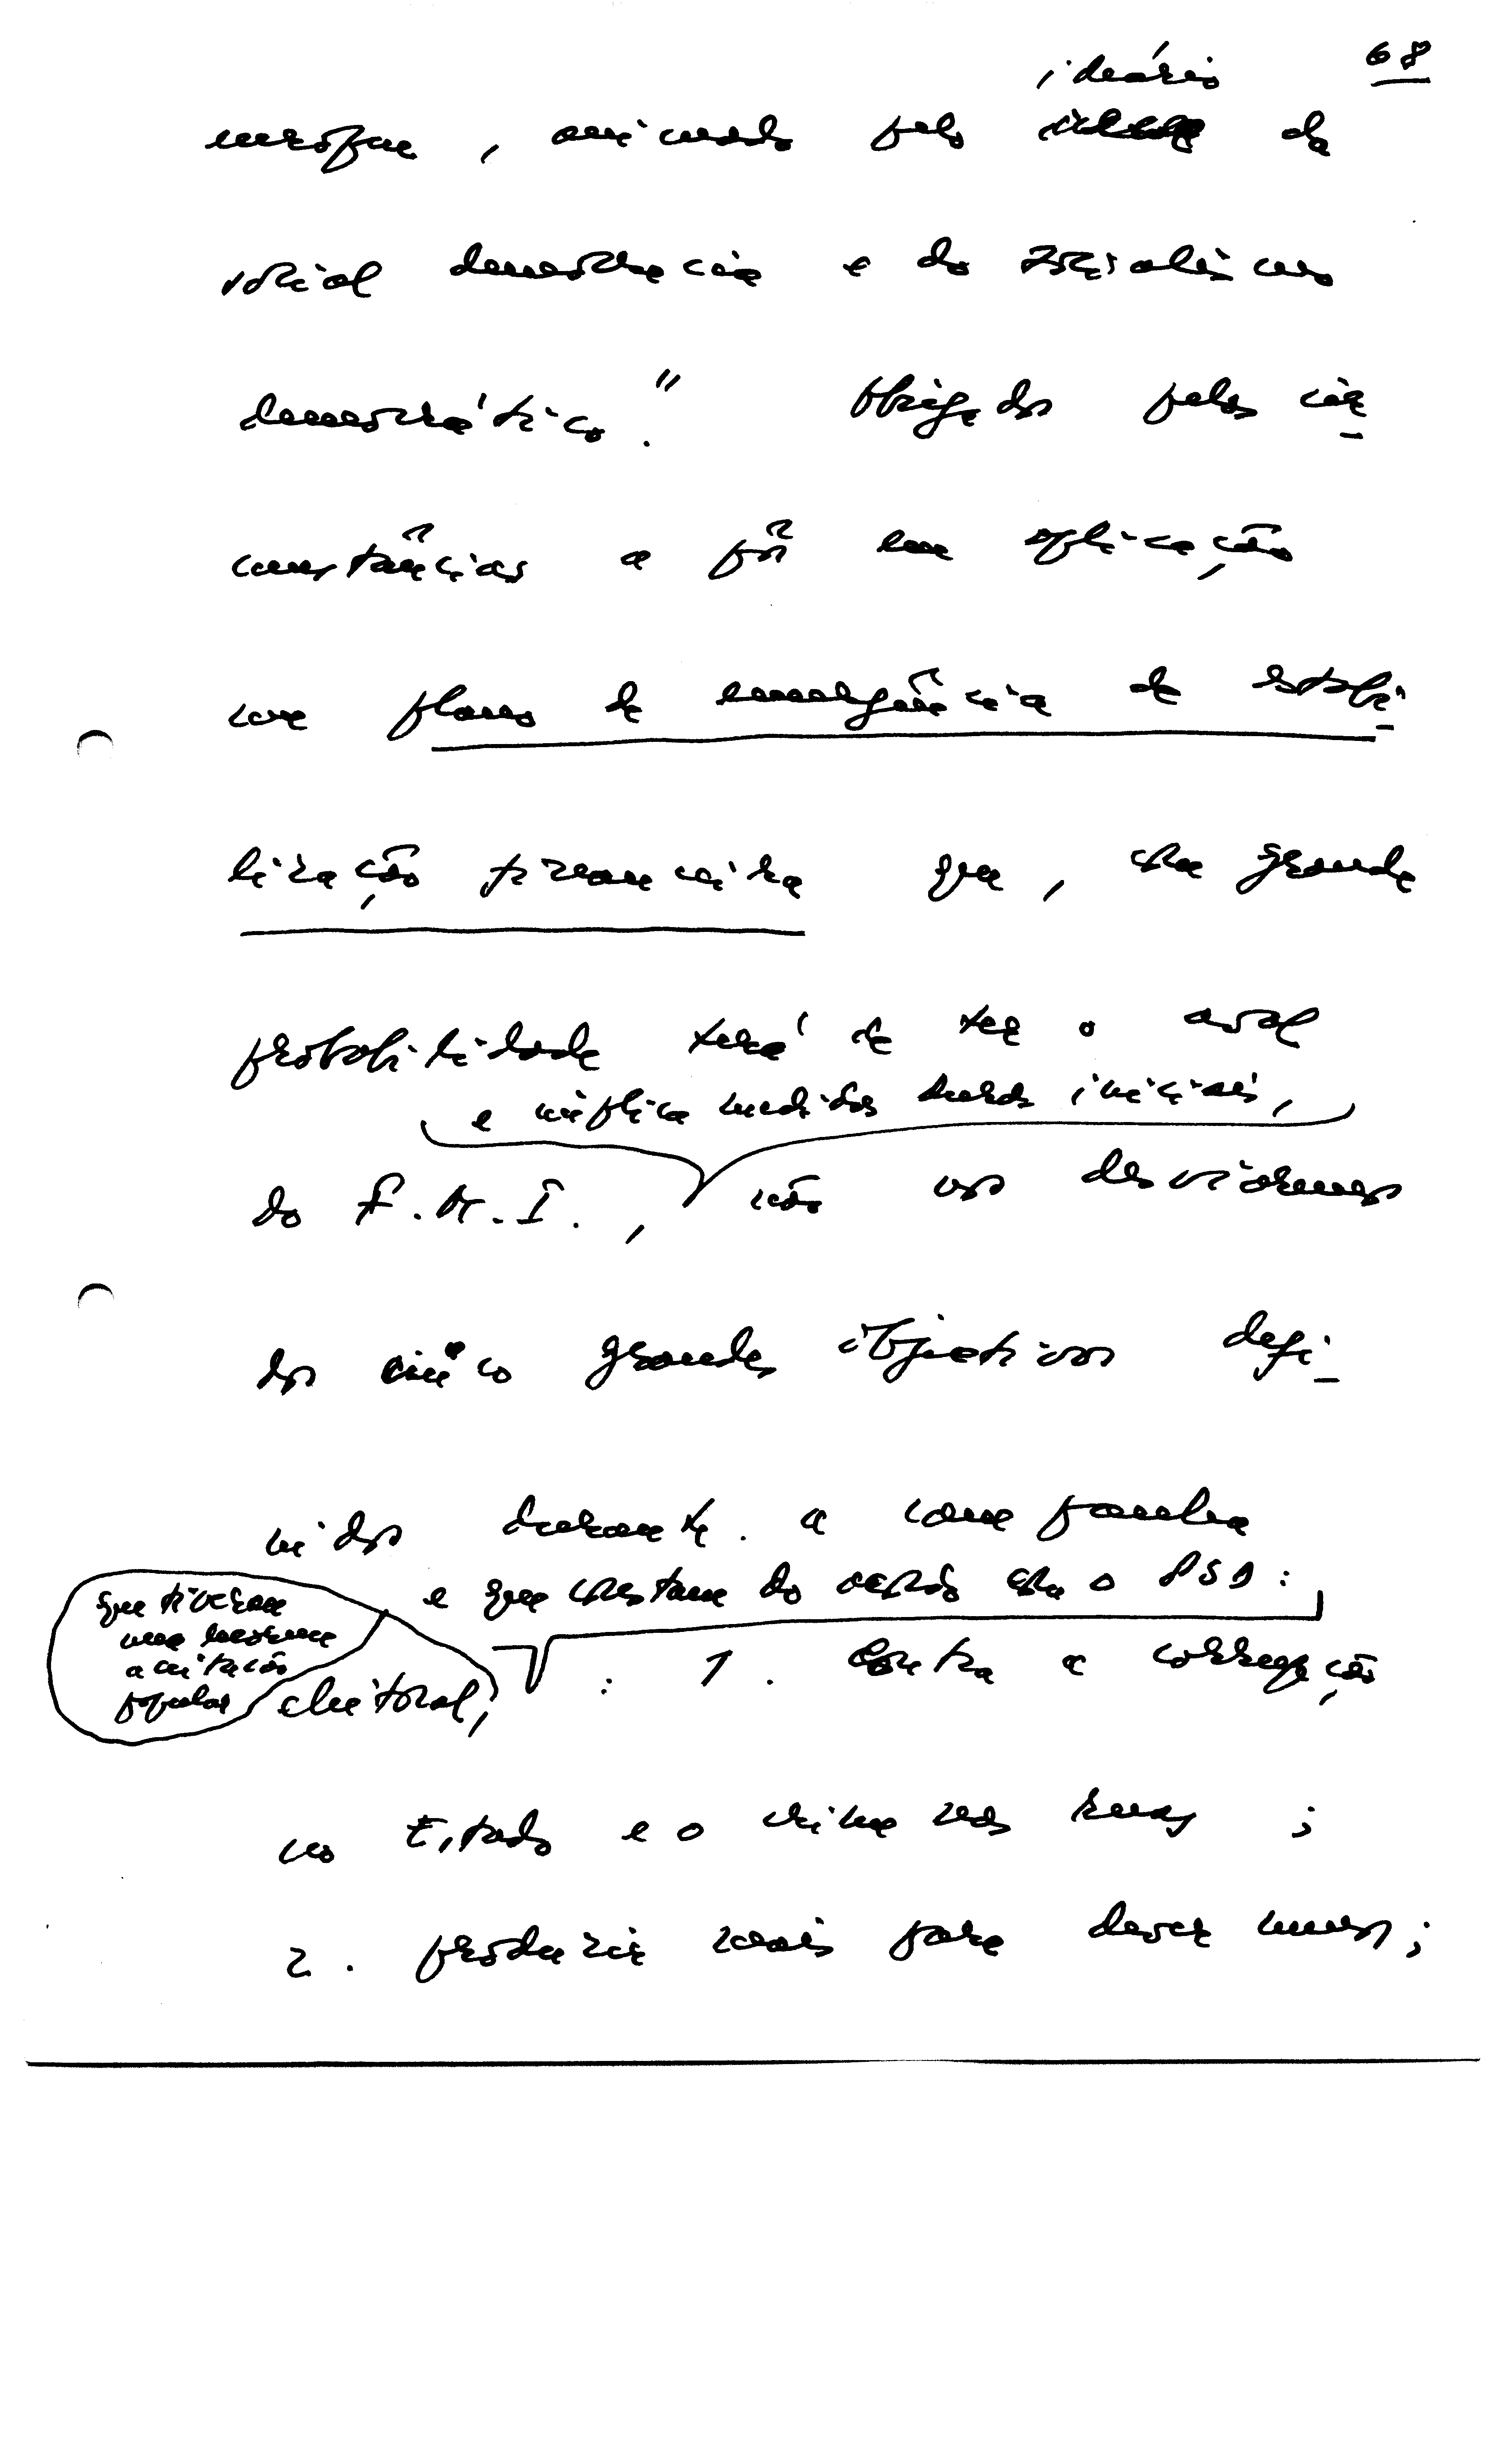 68
ideário
europeu, animado pelo da
social democracia e do socialismo
democrático." Obrigados pelas cir-
cunstâncias a pôr em aplicação
um plano de emergência de estabi-
lização financeira que, com grande
probabilidade terá de ter o aval
e implica medidas duras iniciais,
do F.M.I., não nos desviaremos
dos cinco grandes objectivos defi-
nidos durante a campanha
e que constam do acordo com o PSD:
que tiveram
uma enorme
aceitação
popular
eleitoral, : 1. Contra a corrupção
no Estado e o crime nas ruas;
2. produzir mais para dever menos;